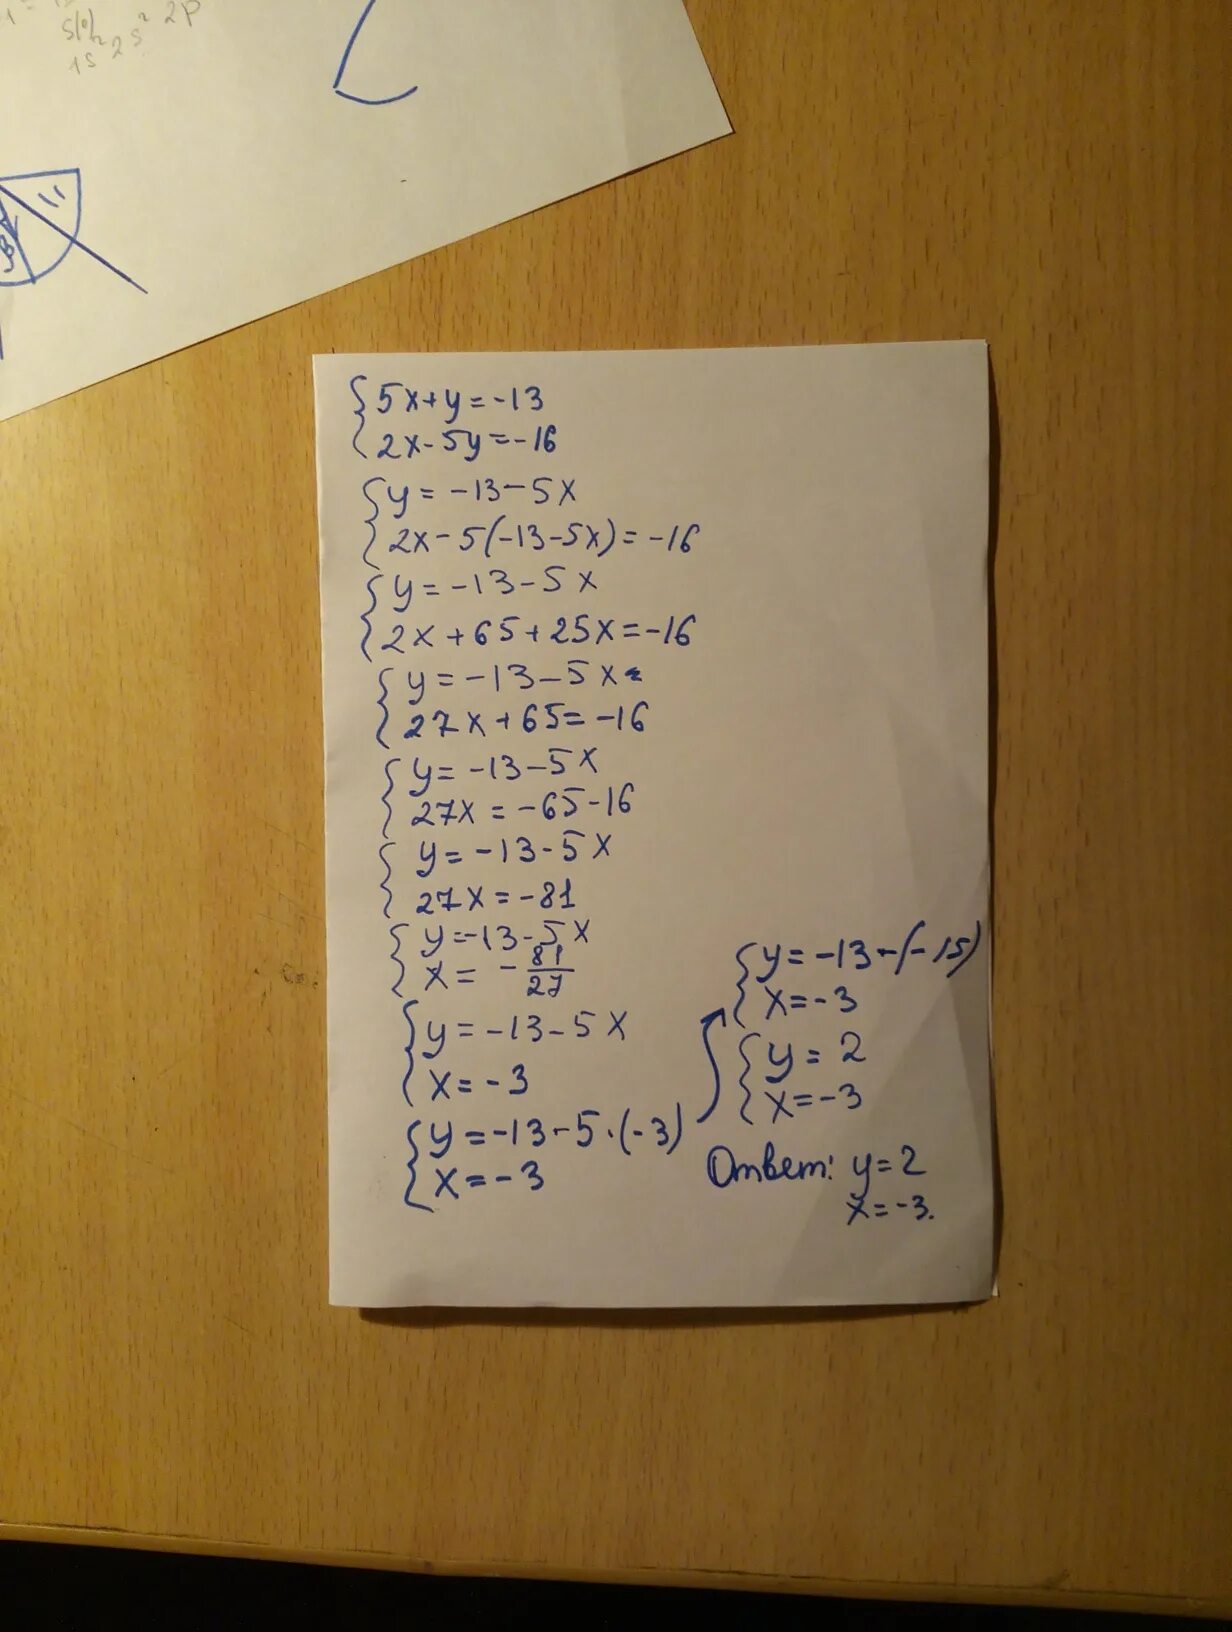 1s 2s² 2p
{5x+y=-13
2x-5y=-16
{y=-13-5x
2x-5(-13-5x)=-16
{y=-13-5x
2x+65+25x=-16
{y=-13-5x
27x+65=-16
{y=-13-5x
27x=-65-16
{y=-13-5x
27x=-81
{y=-13-5x
x=-81/27
{y=-13-5x
x=-3
{y=-13-5·(-3)
x=-3
{y=-13-(-15)
x=-3
{y=2
x=-3
Ответ: y=2
x=-3.